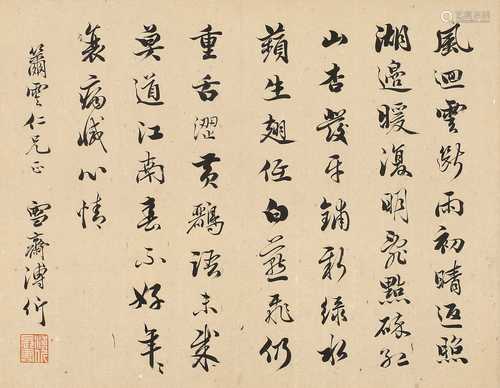 風迴雲斷雨初晴返照
湖邊暖復明亂點碎紅
山杏發平鋪新綠水
蘋生翅低白燕飛仍
重舌澀黃鸝語未成
莫道江南春不好年々
衰病減心情
籋雲仁兄正 雪齋溥伒